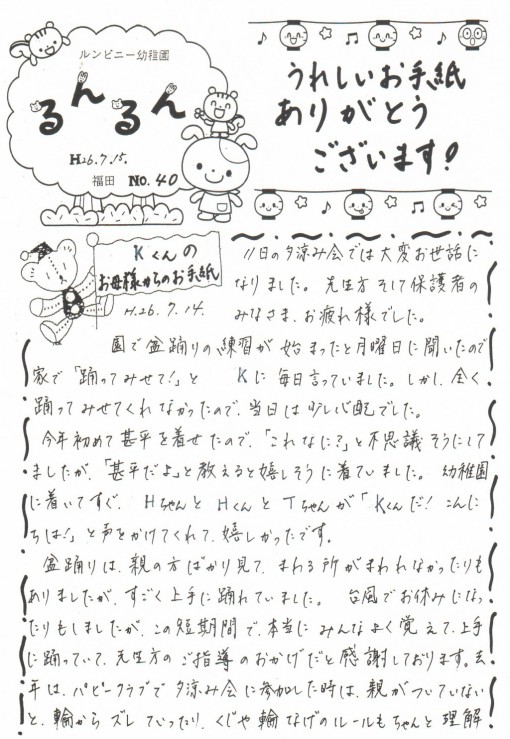 ルンビニー幼稚園
るんるん
H26.7.15.
福田 No.40
うれしいお手紙
ありがとう
ございます!
Kくんの
お母様からのお手紙
H.26.7.14.
11日の夕涼み会では大変お世話に
なりました。先生方そして保護者の
みなさま、お疲れ様でした。
園で盆踊りの練習が始まったと月曜日に聞いたので
家で「踊ってみせて!」と Kに毎日言っていました。しかし、全く
踊ってみせてくれなかったので、当日は少し心配でした。
今年初めて甚平を着せたので、「これなに?」と不思議そうにして
ましたが、「甚平だよ」と教えると嬉しそうに着ていました。幼稚園
に着いてすぐ、HちゃんとHくんとTちゃんが「Kくんだ!こんに
ちは!」と声をかけてくれて、嬉しかったです。
盆踊りは、親の方ばかり見て、まわる所がまわれなかったりも
ありましたが、すごく上手に踊れていました。台風でお休みになっ
たりもしましたが、この短期間で、本当にみんなよく覚えて、上手
に踊っていて、先生方のご指導のおかげだと感謝しております。去
年は、パピークラブで夕涼み会に参加した時は、親がついていない
と、輪からズレていったり、くじや輪なげのルールもちゃんと理解